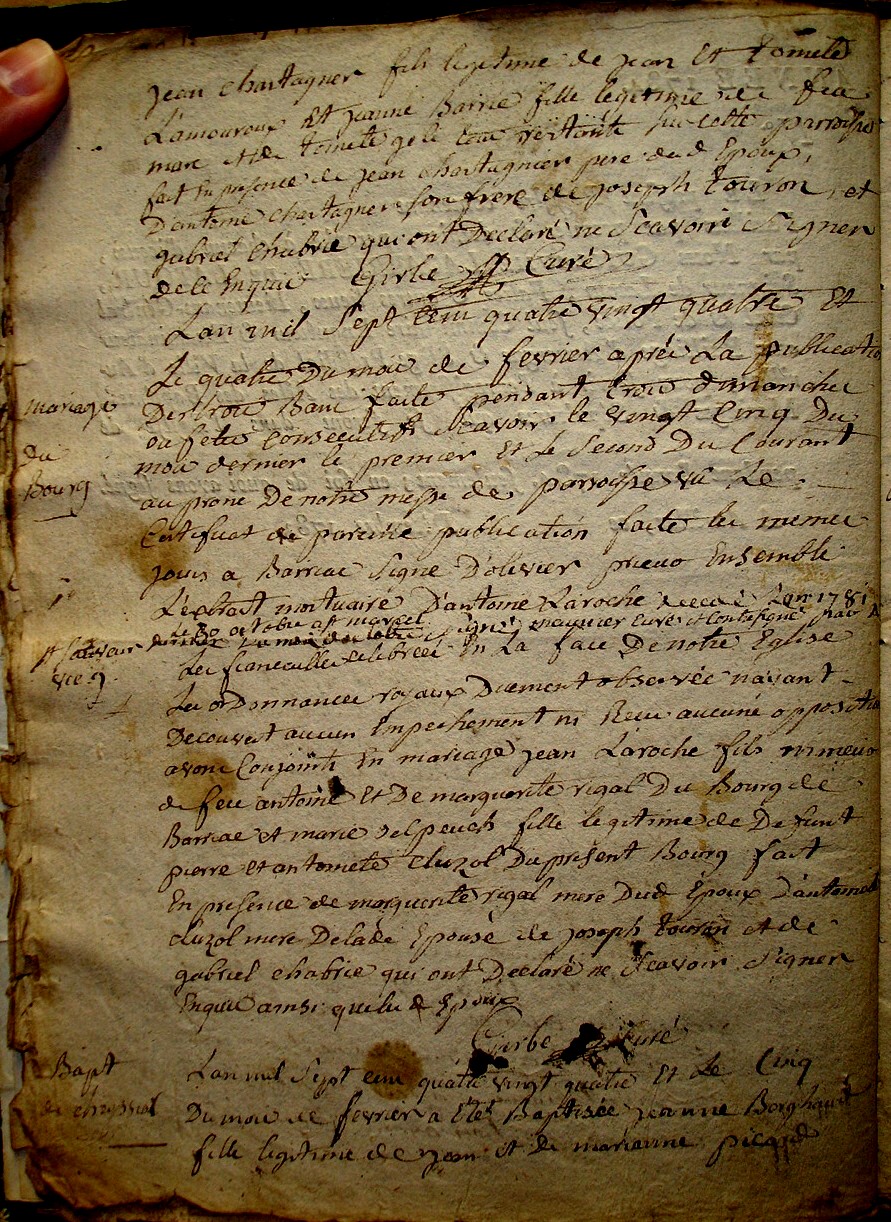 jean chastagner fils legitime de jean Et tomete
Lamouroux Et jeanne Barrie fille legitime de feu
marc et de tomete gole tous restants sur cette parroisse
fait En presence de jean chastagnier pere dud Epoux,
D'antoine chastagner son frere de joseph touron, et
gabriel chabrie qui ont Declaré ne Scavoir Signer
de ce Enquis Girbe Curé
Lan mil Sept cens quatre vingt quatre Et
Le quatre Du mois de fevrier aprés La publicatio
mariage
du
Bourg
Des trois Bans faite pendant trois dimanches
ou fetes consecutifs Scavoir le vingt Cinq Du
mois dernier le premier Et le Second Du Courant
au prone De notre messe de parroisse vu Le
Certificat de pareille publication faite les memes
jours a Barriac Signé D'olivier prieur Ensemble
L'extrait mortuaire D'antoine Laroche decedé Lan 1781
le 30 octobre a st marcel signé meynier curé et contresigné
Les fiancailles celebrées En La face De notre Eglise
Les ordonnances royaux Duement observée n'ayant
Decouvert aucun Empechement ni Recu aucune oppositio
avons Conjoints En mariage jean Laroche fils mineur
de feu antoine Et De marguerite rigal Du Bourg de
Barriac et marie delpeuch fille legitime de Defunt
pierre et antomete cluzol Du present Bourg fait
En presence de marguerite rigal mere Dud Epoux D'antomete
cluzol mere De lade Epouse de joseph touron et de
gabriel chabrie qui ont Declaré ne Scavoir Signer
Enquis ainsi que les d Epoux
Girbe Curé
Bapt
de
Lan mil Sept cens quatre vingt quatre Et Le Cinq
Du mois de fevrier a Eté Baptisée jeanne
fille legitime de jean et de marianne